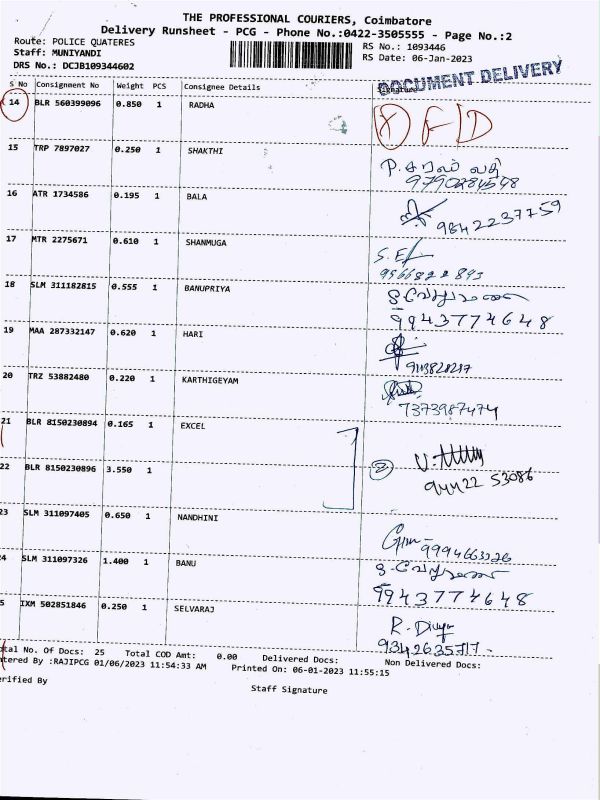 THE PROFESSIONAL COURIERS, Coimbatore
Delivery Runsheet - PCG - Phone No.:0422-3505555 - Page No.:2
Route: POLICE QUATERES
RS No.: 1093446
Staff: MUNIYANDI
RS Date: 06-Jan-2023
DRS No.: DCJB109344602
DOCUMENT DELIVERY
S No Consignment No Weight PCS Consignee Details Signature
14 BLR 560399096 0.850 1 RADHA
15 TRP 7897027 0.250 1 SHAKTHI
9790284548
16 ATR 1734586 0.195 1 BALA
9842237759
17 MTR 2275671 0.610 1 SHANMUGA
9566822893
18 SLM 311182815 0.555 1 BANUPRIYA
9943774648
19 MAA 287332147 0.620 1 HARI
20 TRZ 53882480 0.220 1 KARTHIGEYAM
7373987474
21 BLR 8150230894 0.165 1 EXCEL
22 BLR 8150230896 3.550 1 2
94422 53086
23 SLM 311097405 0.650 1 NANDHINI
9994663326
4 SLM 311097326 1.400 1 BANU
9943774648
5 IXM 502851846 0.250 1 SELVARAJ
R. Divya
9342635717-
tal No. Of Docs: 25 Total COD Amt: 0.00 Delivered Docs: Non Delivered Docs:
tered By :RAJIPCG 01/06/2023 11:54:33 AM Printed On: 06-01-2023 11:55:15
erified By
Staff Signature